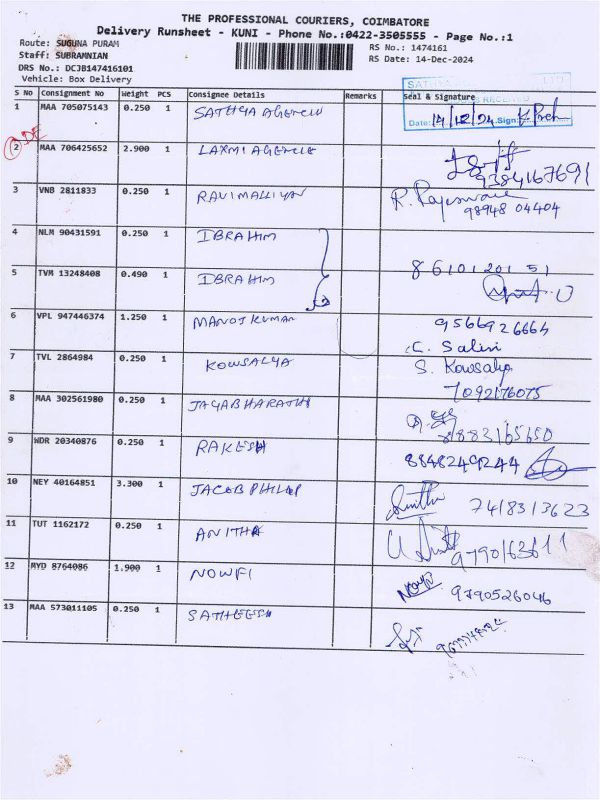 THE PROFESSIONAL COURIERS, COIMBATORE
Delivery Runsheet - KUNI - Phone No.:0422-3505555 - Page No.:1
Route: SUGUNA PURAM RS No.: 1474161
Staff: SUBRAMNIAN RS Date: 14-Dec-2024
DRS No.: DCJB147416101
Vehicle: Box Delivery
S No Consignment No Weight PCS Consignee Details Remarks Seal & Signature
1 MAA 705075143 0.250 1 SATHYA AGENCIE
Date: 14/12/24 Sign:
2 MAA 706425652 2.900 1 LAXMI AGENCIE 9384167691
3 VNB 2811833 0.250 1 RAVIMALLIYAN R. Rajeswari
98948 04404
4 NLM 90431591 0.250 PCS 1 IBRAHIM
5 TVM 13248408 0.490 PCS 1 IBRAHIM 8610120151
6 VPL 947446374 1.250 PCS 1 MANOJ KUMAR 9566926664
C. Salini
7 TVL 2864984 0.250 PCS 1 KOWSALYA S. Kowsalya
7092176075
8 MAA 302561980 0.250 PCS 1 JAYABHARATH 8883165650
9 WDR 20340876 0.250 PCS 1 RAKESH 8848249244
10 NEY 40164851 3.300 PCS 1 JACOB PHILIP 7418313623
11 TUT 1162172 0.250 PCS 1 ANITHA 9790163611
12 MYD 8764086 1.900 PCS 1 NOWFI 9790526046
13 MAA 573011105 0.250 PCS 1 SATHEESH